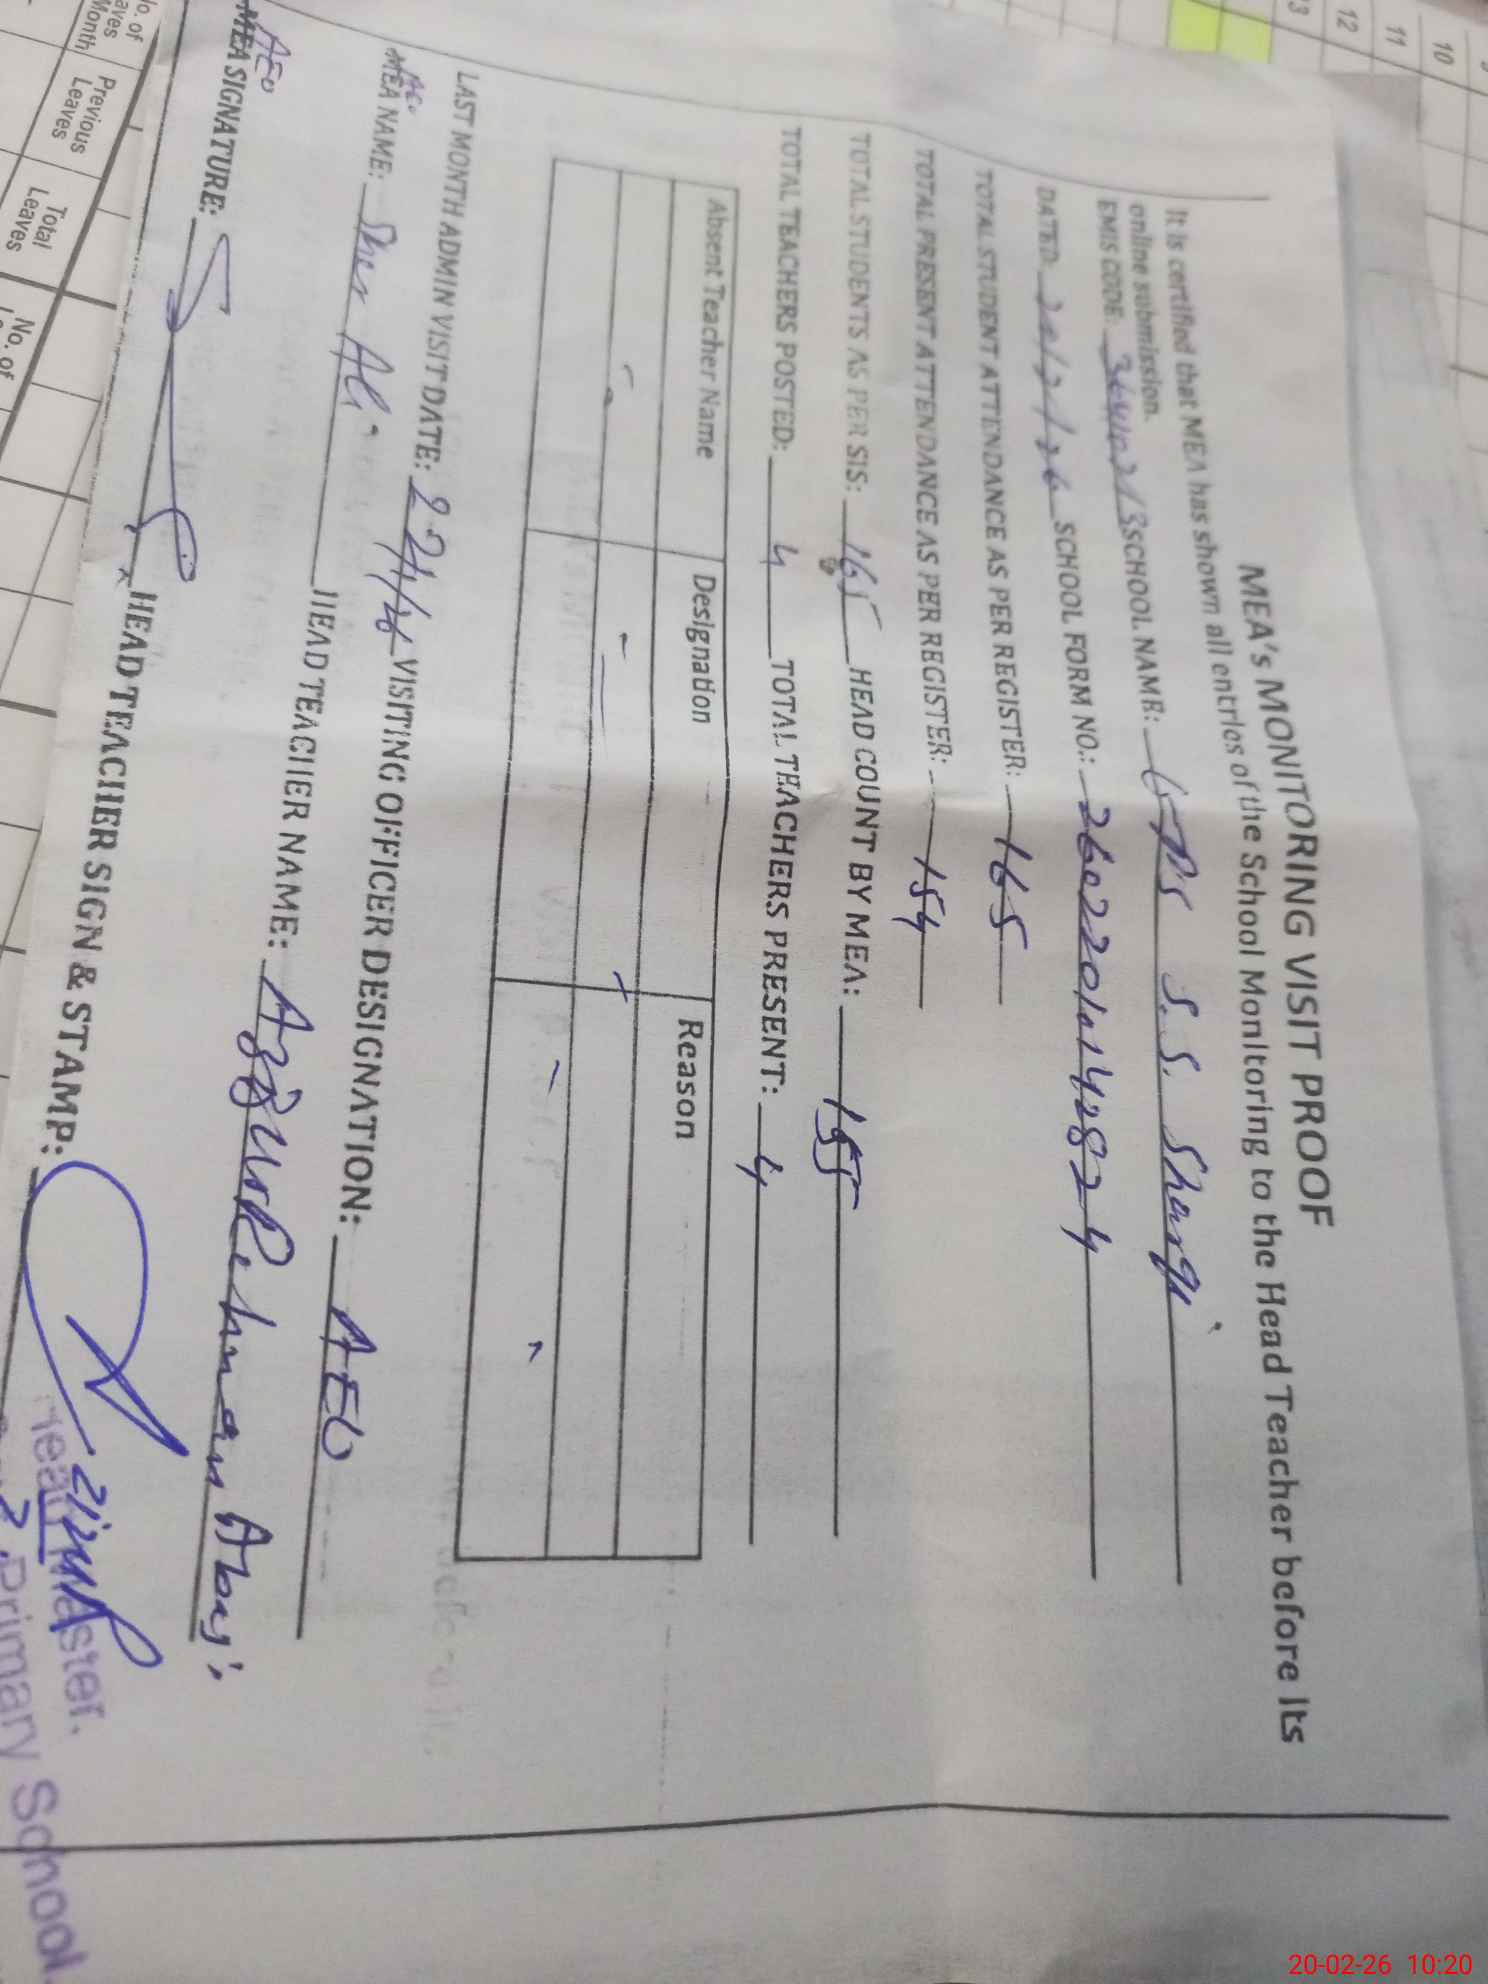 MEA's MONITORING VISIT PROOF
It is certified that MEA has shown all entries of the School Monitoring to the Head Teacher before its
online submission.
EMIS CODE: SCHOOL NAME: GPS S.S. Sharqi
DATED: 20/2/26 SCHOOL FORM NO.:
TOTAL STUDENT ATTENDANCE AS PER REGISTER: 165
TOTAL PRESENT ATTENDANCE AS PER REGISTER: 154
TOTAL STUDENTS AS PER SIS: 165 HEAD COUNT BY MEA: 155
TOTAL TEACHERS POSTED: 4 TOTAL TEACHERS PRESENT: 4
Absent Teacher Name Designation Reason
LAST MONTH ADMIN VISIT DATE: VISITING OFFICER DESIGNATION: AEO
MEA NAME: Sher Ali HEAD TEACHER NAME: Aziz ur Rehman
AEO
MEA SIGNATURE: HEAD TEACHER SIGN & STAMP:
Primary School
No. of
Leaves
Month
Previous
Leaves
Total
Leaves
No. of
10
11
12
13
20-02-26 10:20